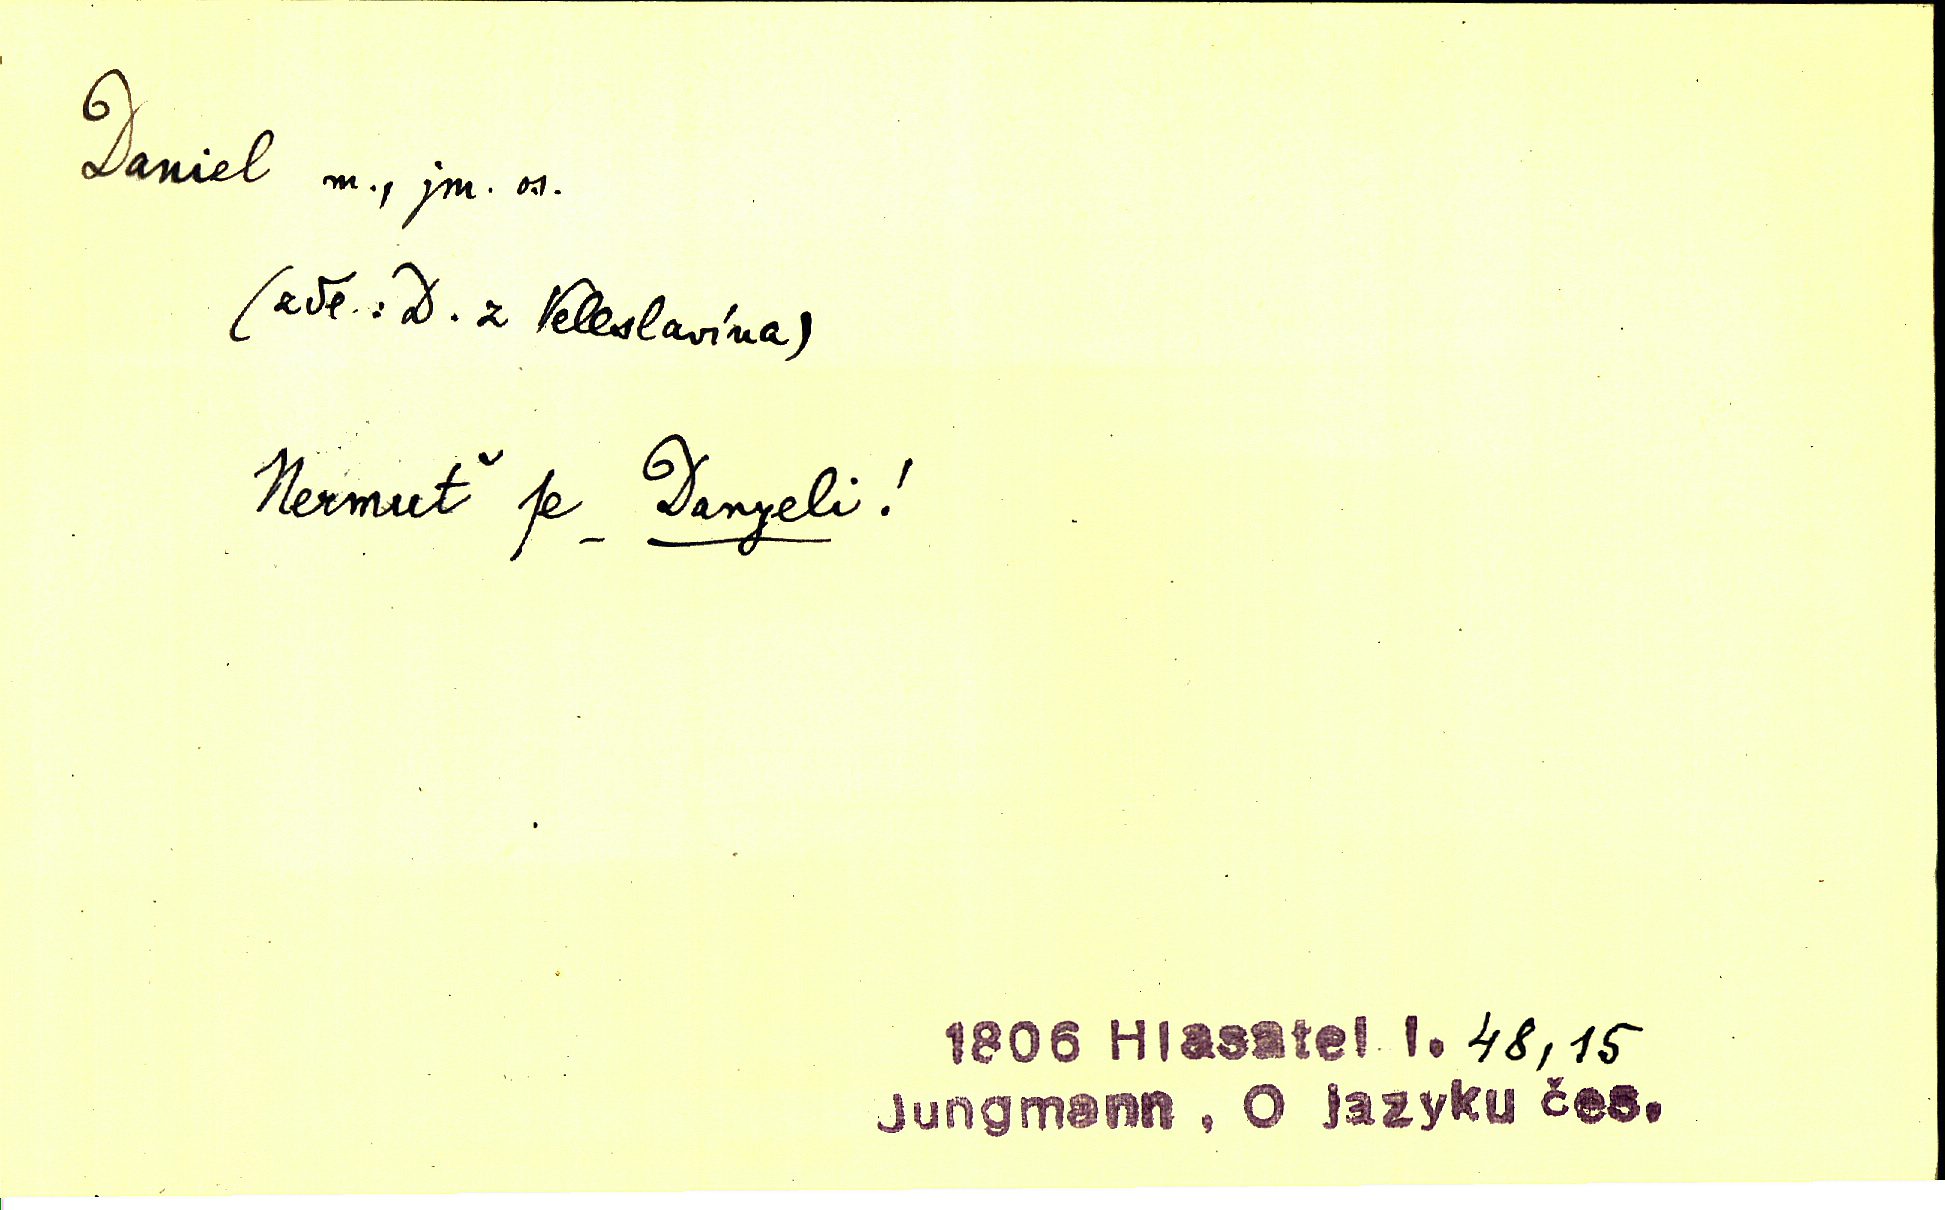 Daniel m., jm. os.
(zde: D. z Veleslavína)
Nermutˇ se Danyeli!
1806 Hlasatel I. 48, 15
Jungmann, O jazyku čes.